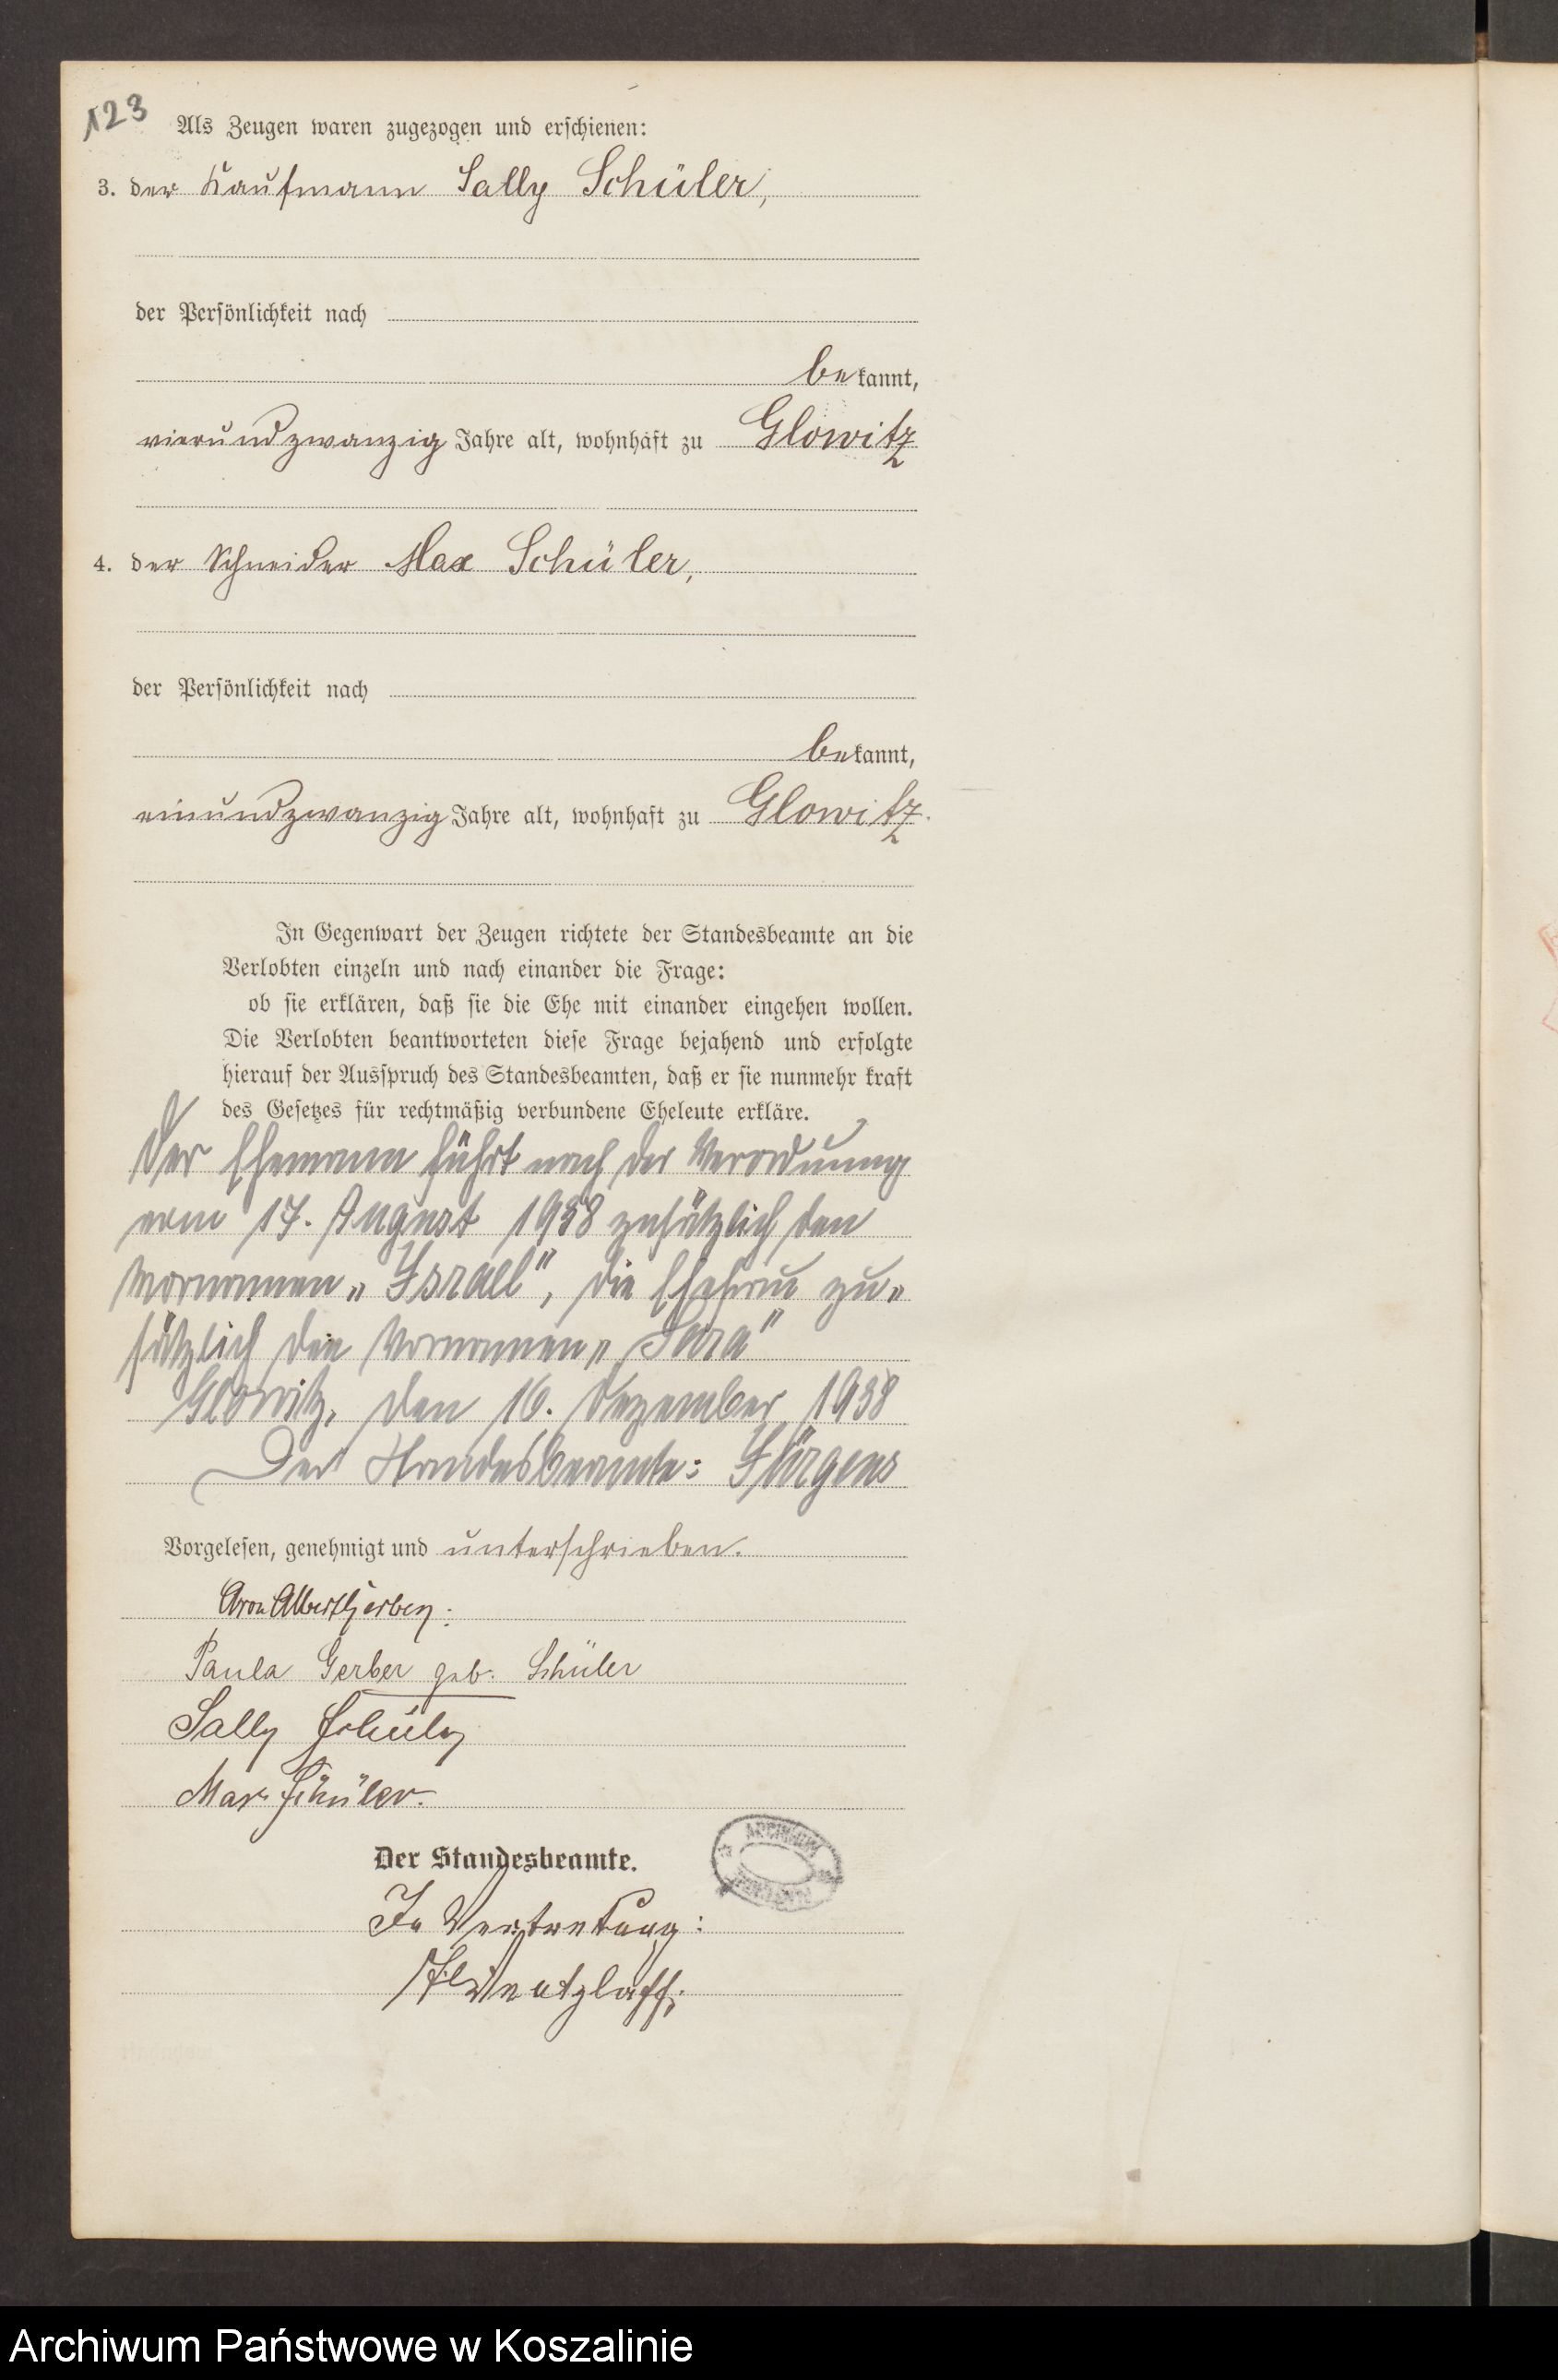 123
Als Zeugen waren zugezogen und erschienen:
3. der Kaufmann Sally Schüler,
der Persönlichkeit nach
bekannt,
vierundzwanzig Jahre alt, wohnhaft zu Glowitz
4. der Schneider Max Schüler,
der Persönlichkeit nach
bekannt,
einundzwanzig Jahre alt, wohnhaft zu Glowitz.
In Gegenwart der Zeugen richtete der Standesbeamte an die
Verlobten einzeln und nach einander die Frage:
ob sie erklären, daß sie die Ehe mit einander eingehen wollen.
Die Verlobten beantworteten diese Frage bejahend und erfolgte
hierauf der Ausspruch des Standesbeamten, daß er sie nunmehr kraft
des Gesetzes für rechtmäßig verbundene Eheleute erkläre.
Der Ehemann führt nach der Verordnung
vom 17. August 1938 zusätzlich den
Vornamen „Israel", die Ehefrau zu„
sätzlich den Vornamen „Sara"
Glowitz, den 16. Dezember 1938
Der Standesbeamte: Jürgens
Vorgelesen, genehmigt und unterschrieben.
Aron Albert Gerber.
Paula Gerber geb. Schüler
Sally Schüler
Max Schüler.
Der Standesbeamte.
In Vertretung:
Wentzlaff.
Archiwum Państwowe w Koszalinie